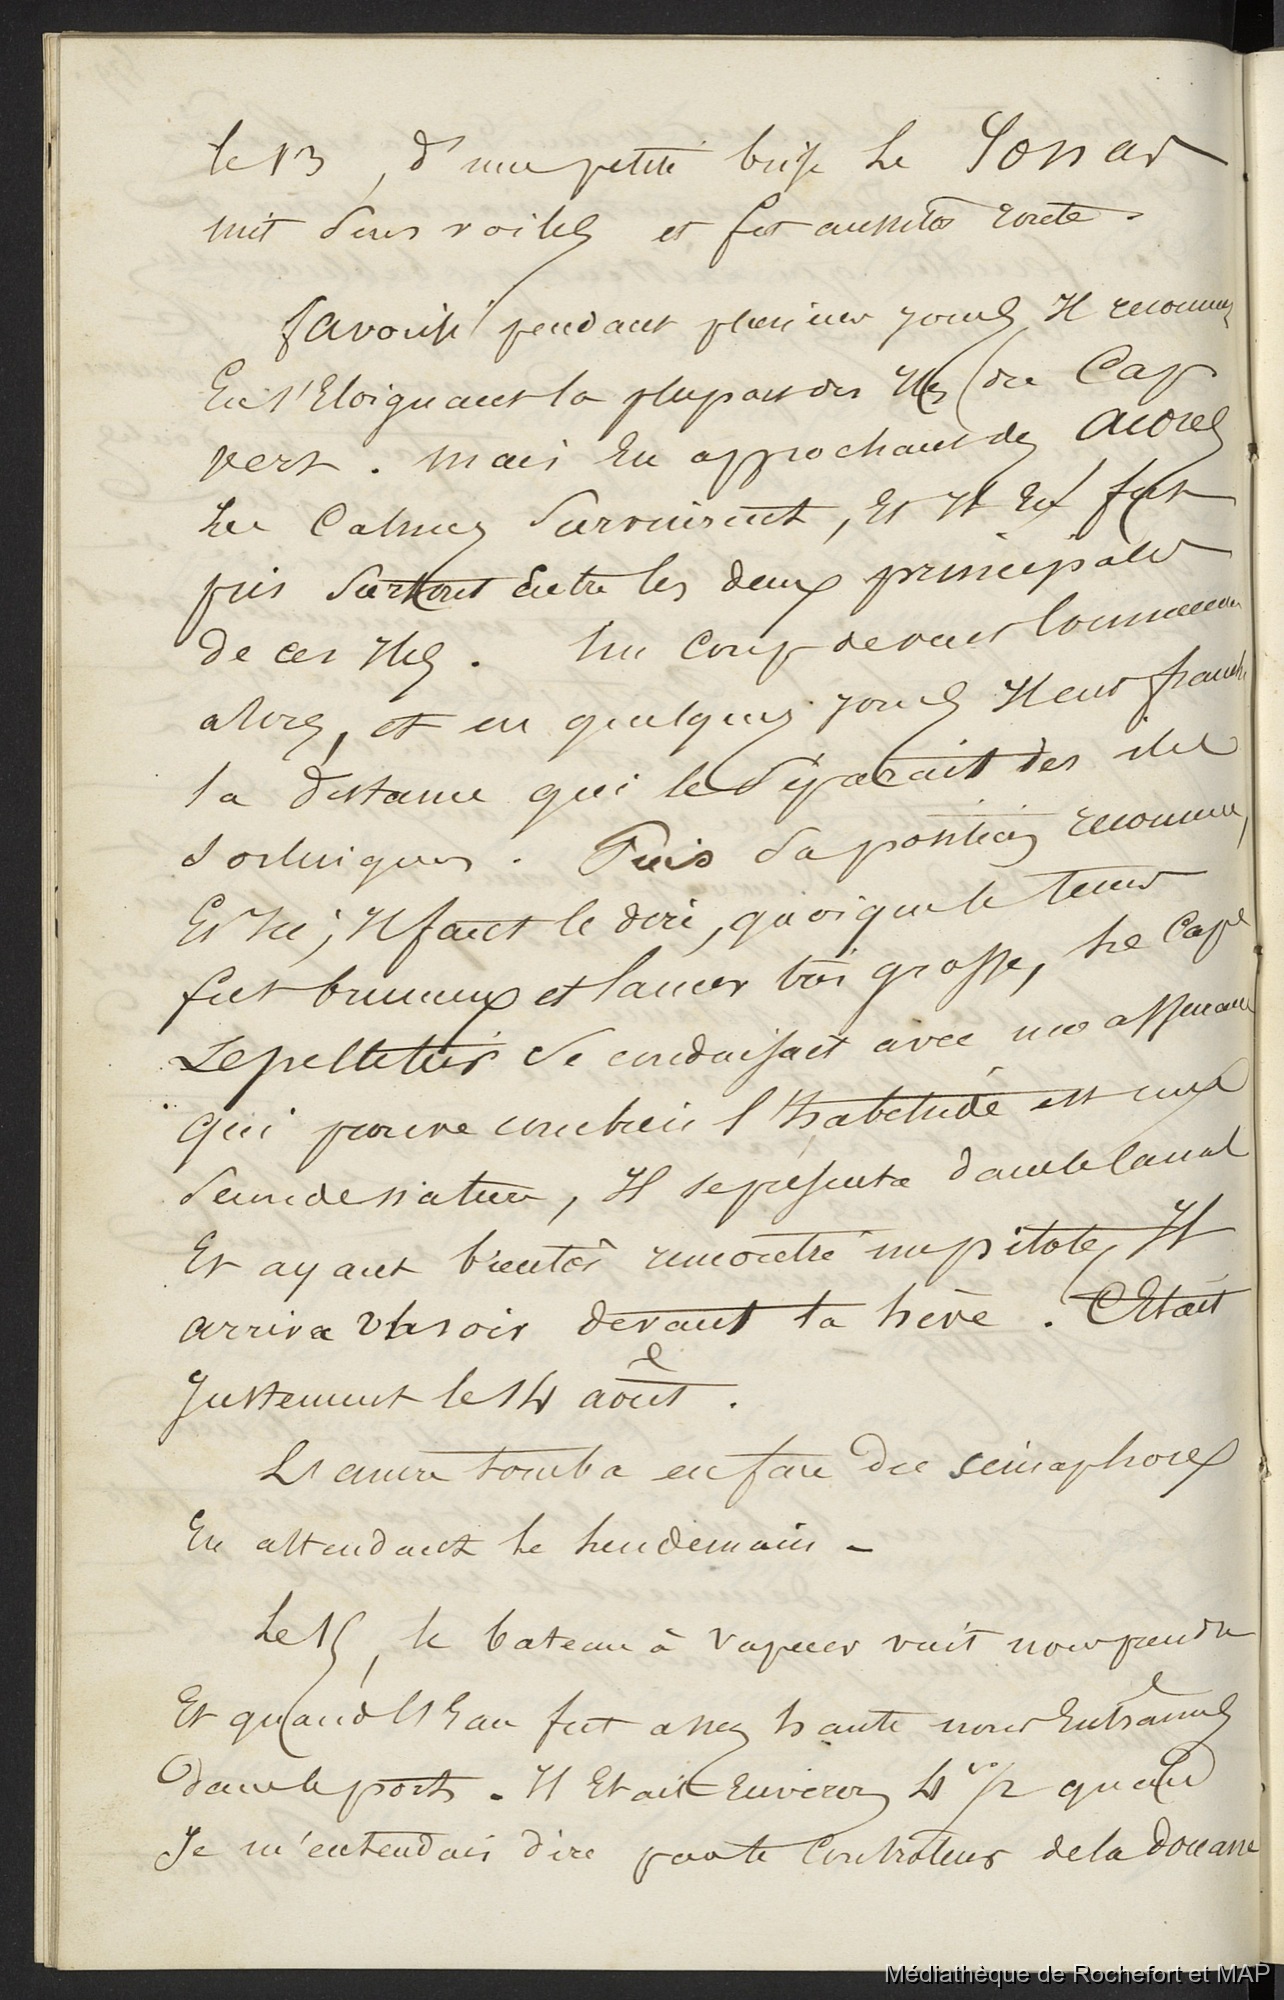 le 13, d'une petite brise le Sonar
mit sous voiles et fit aussitôt route.
favorisé pendant plusieurs jours, Il reconnut
En s'Eloignant la plupart des Iles du Cap
vert. mais En approchant des Acores
Les Calmes survinrent, Et Il En fut
pris surtout Entre les deux principales
de ces Iles. Un coup de vent
alors, et en quelques jours Il eut franchi
la distance qui le séparait des iles
sorlingues. Puis sa position reconnue,
Et Ici, Il faut le dire, quoique le tems
fut brumeux et la mer très grosse, Le Cape
Lepelletier se conduisait avec une assurance
qui prouve combien l'habitude est une
seconde nature, Il se présenta dans le Canal
Et ayant bientôt rencontré un pilote, Il
arriva le soir devant la hève. C'Etait
Justement le 14 aout.
L'ancre tomba en face des sémaphores
En attendant le Lendemain –
Le 15, le bateau à vapeur vint nous prendre
Et quand l'Eau fut assez haute nous Entrames
dans le port. Il Etait Environ 4 h 1/2 quand
Je m'entendais dire par le Controleur de la Douane
Médiathèque de Rochefort et MAP